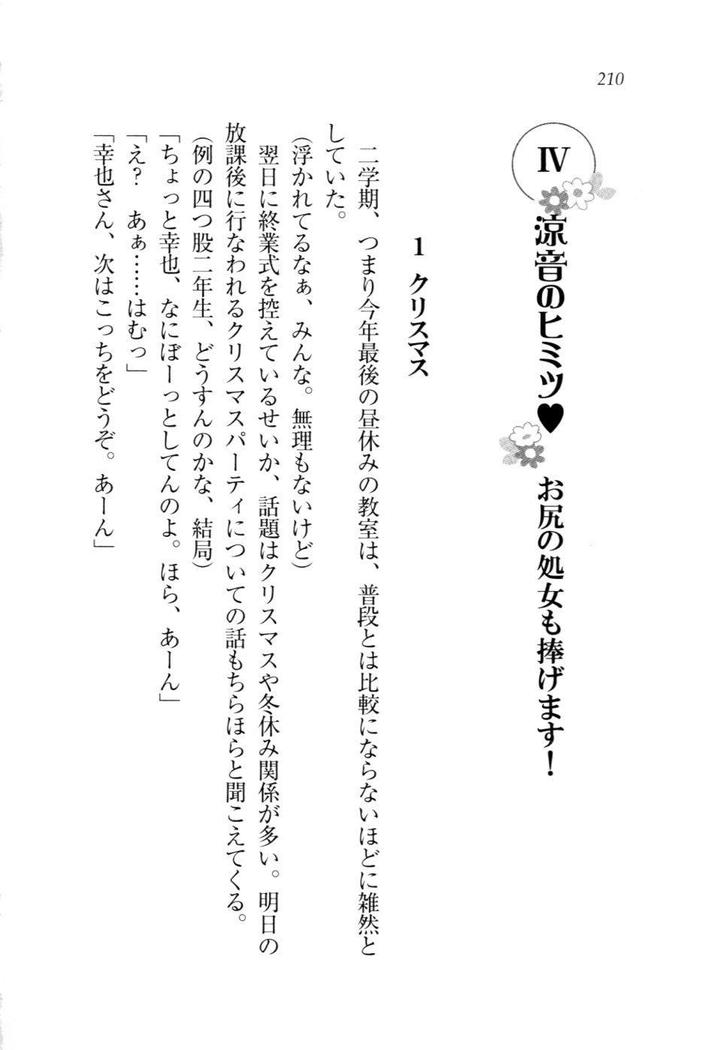 210
Ⅳ 涼音のヒミツ♥ お尻の処女も捧げます！
1 クリスマス
二学期、つまり今年最後の昼休みの教室は、普段とは比較にならないほどに雑然と
していた。
（浮かれてるなぁ、みんな。無理もないけど）
翌日に終業式を控えているせいか、話題はクリスマスや冬休み関係が多い。明日の
放課後に行なわれるクリスマスパーティについての話もちらほらと聞こえてくる。
（例の四つ股二年生、どうすんのかな、結局）
「ちょっと幸也、なにぼーっとしてんのよ。ほら、あーん」
「え？ あぁ……はむっ」
「幸也さん、次はこっちをどうぞ。あーん」